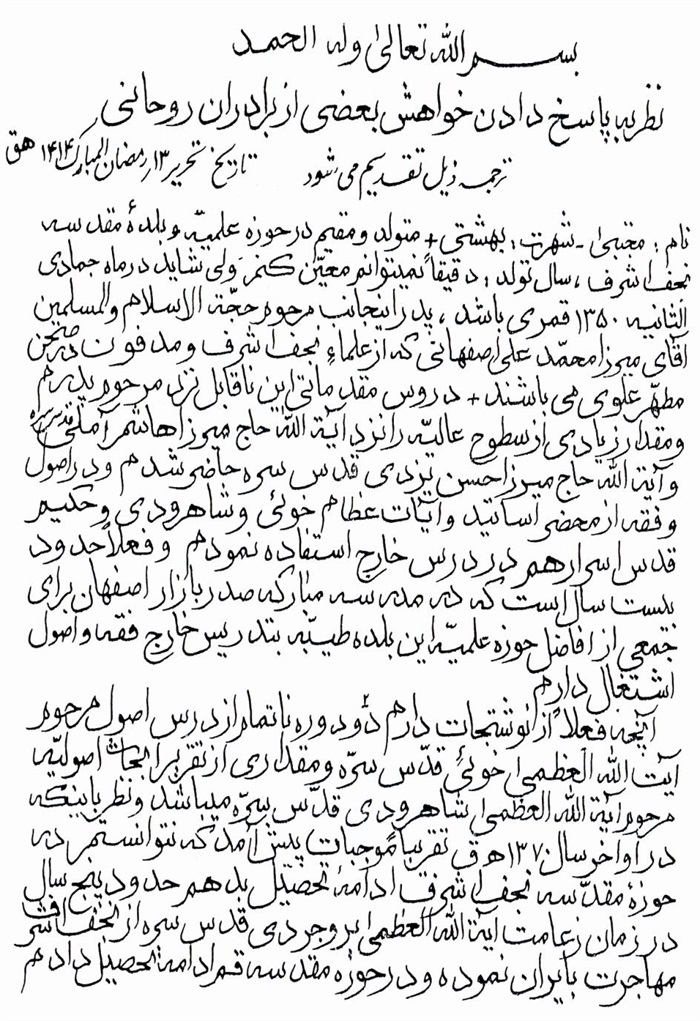 بسم الله تعالیٰ وله الحمد
نظر به پاسخ دادن خواهش بعضی از برادران روحانی
ترجمه ذیل تقدیم می شود تاریخ تحریر ۱۳ رمضان المبارک ۱۴۱۴ هق
نام : مجتبیٰ - شهرت : بهشتی + متولد و مقیم در حوزه علمیّه و بلدهٔ مقدسه
نجف اشرف ، سال تولد : دقیقاً نمیتوانم معیّن کنم ولی شاید در ماه جمادی
الثانیه ۱۳۵۰ قمری باشد ، پدر اینجانب مرحوم حجّة الاسلام والمسلمین
آقای میرزا محمّد علی اصفهانی که از علماءِ نجف اشرف و مدفون در صحن
مطهّر علوی می باشند + دروس مقدماتی این ناقابل نزد مرحوم پدرم
و مقدار زیادی از سطوح عالیّه را نزد آیة الله حاج میرزا هاشم آملی قدس سره
و آیة الله حاج میرزا حسن یزدی قدس سره حاضر شدم و در اصول
و فقه از محضر اساتید و آیات عظام خوئی و شاهرودی و حکیم
قدس اسرارهم در درس خارج استفاده نمودم و فعلاً حدود
بیست سال است که در مدرسه مبارکه صدر بازار اصفهان برای
جمعی از افاضل حوزه علمیّه این بلده طیبّه بتدریس خارج فقه و اصول
اشتغال دارم
آنچه فعلاً از نوشتجات دارم دو دوره ناتمام از درس اصول مرحوم
آیت الله العظمیٰ خوئی قدّس سرّه و مقداری از تقریر ابحاث اصولیّه
مرحوم آیة الله العظمیٰ شاهرودی قدّس سرّه میباشد و نظر باینکه
در اواخر سال ۱۳۷۰ ه ق تقریباً موجبات پیش آمد که نتوانستم در
حوزهٔ مقدّسه نجف اشرف ادامهٔ تحصیل بدهم حدود پنج سال
در زمان زعامت آیة الله العظمیٰ بروجردی قدس سره از نجف اشرف
مهاجرت بایران نموده و در حوزه مقدسه قم ادامه تحصیل دادم